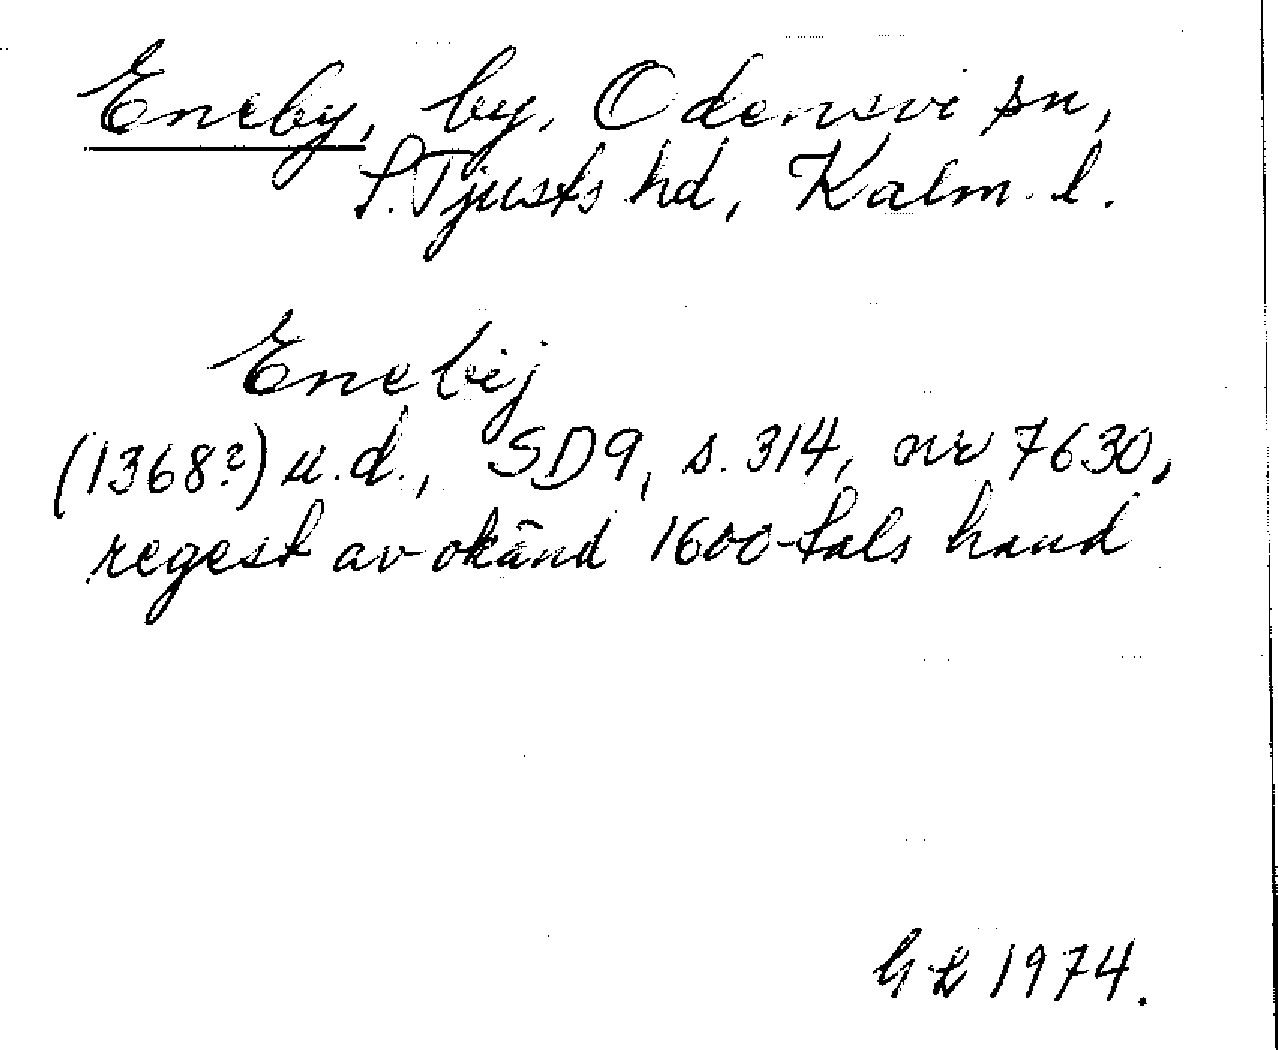 Eneby, by, Odensvi sn,
S. Tjusts hd, Kalm. l.
Enebij
(1368?) u.d., SD9, s. 314, nr 7630,
regest av okänd 1600-tals hand
1974.